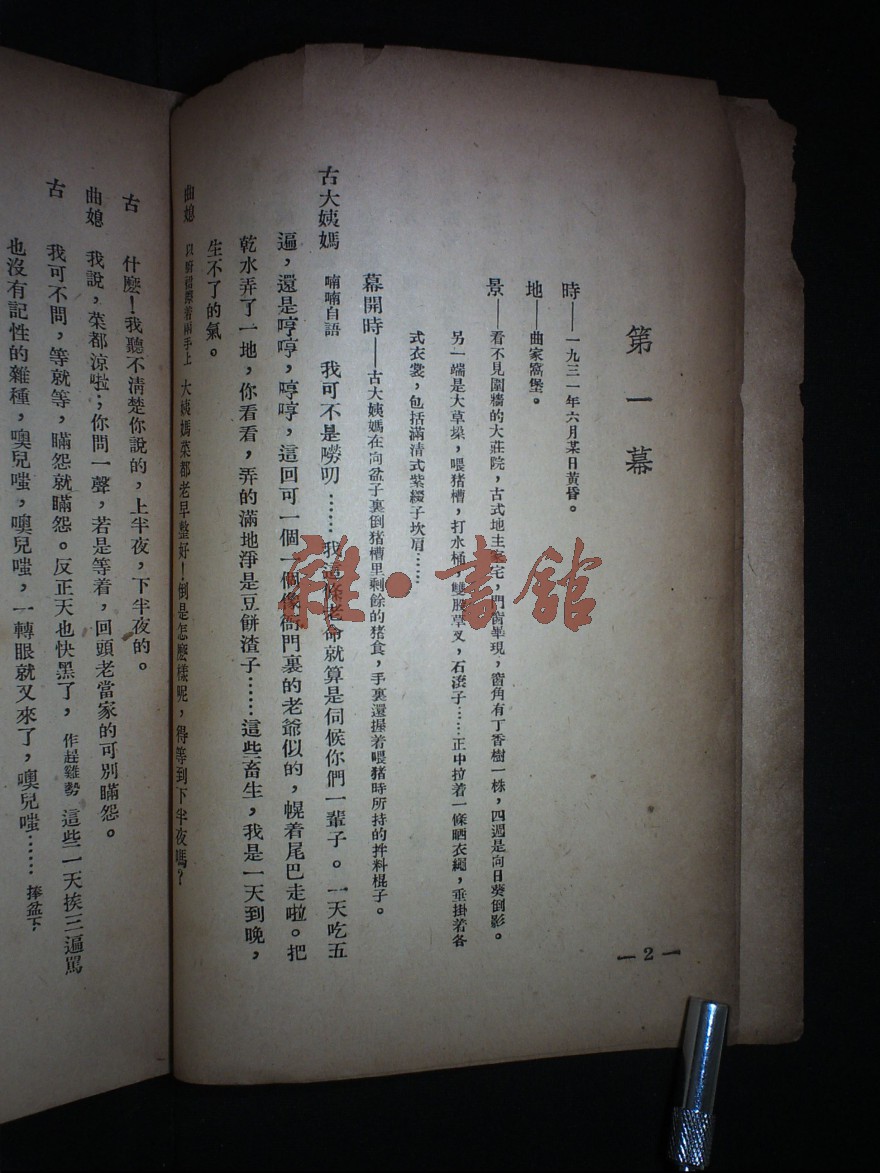 第一幕
時—一九三一年六月某日黃昏。
地—曲家窩堡。
景—看不見圍牆的大莊院,古式地主家宅,門窗畢現,窗角有丁香樹一株,四週是向日葵倒影。
另一端是大草垛,喂猪槽,打水桶,雙股草叉,石滾子……正中拉着一條晒衣繩,垂掛着各
式衣裳,包括滿清式紫緞子坎肩……
幕開時—古大姨媽在向盆子裏倒猪槽里剩餘的猪食,手裏還握着喂猪時所持的拌料棍子。
古大姨媽 喃喃自語 我可不是嘮叨……我這條老命就算是伺候你們一輩子。一天吃五
遍,還是哼哼,哼哼,這回可一個一個像衙門裏的老爺似的,幌着尾巴走啦。把
乾水弄了一地,你看看,弄的滿地淨是豆餅渣子……這些畜生,我是一天到晚,
生不了的氣。
—2—
曲媳 只廚裙擦着兩手上 大姨媽菜都老早整好!倒是怎麽樣呢,得等到下半夜嗎?
古 什麽!我聽不清楚你說的,上半夜,下半夜的。
曲媳 我說,菜都涼啦;你問一聲,若是等着,回頭老當家的可別瞞怨。
古 我可不問,等就等,瞞怨就瞞怨。反正天也快黑了,作趕雞勢 這些一天挨三遍罵
也沒有記性的雜種,噢兒嗤,噢兒嗤,一轉眼就又來了,噢兒嗤…… 捧盆下
雜·書館